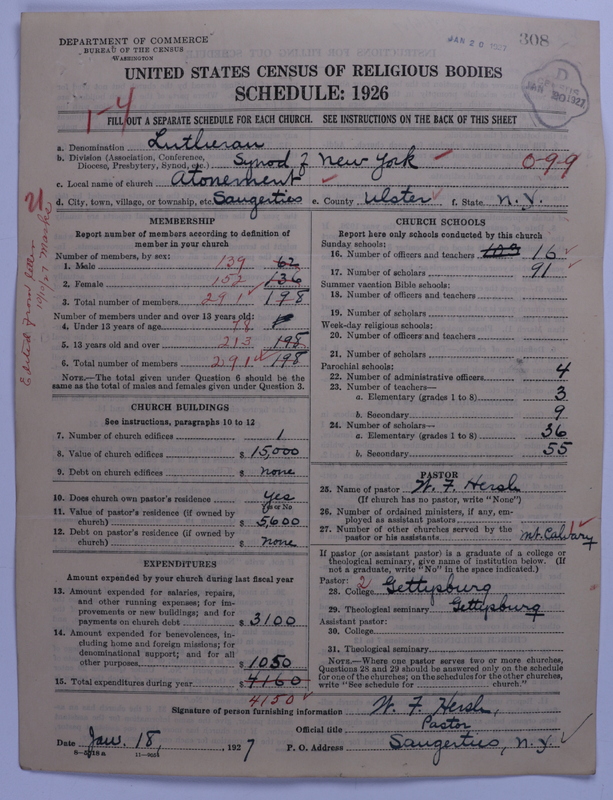 DEPARTMENT OF COMMERCE
BUREAU OF THE CENSUS
WASHINGTON
JAN 20 1927
308
UNITED STATES CENSUS OF RELIGIOUS BODIES
SCHEDULE: 1926
D
JAN 20 1927
1-4
FILL OUT A SEPARATE SCHEDULE FOR EACH CHURCH. SEE INSTRUCTIONS ON THE BACK OF THIS SHEET
a. Denomination Lutheran
b. Division (Association, Conference, Diocese, Presbytery, Synod, etc.) Synod of New York 0-9-9
c. Local name of church Atonement
d. City, town, village, or township, etc. Saugerties e. County Ulster f. State N.Y.
MEMBERSHIP
Report number of members according to definition of
member in your church
Number of members, by sex:
1. Male 139 62
2. Female 152 136
3. Total number of members 291 198
Number of members under and over 13 years old:
4. Under 13 years of age 78
5. 13 years old and over 213 198
6. Total number of members 291 198
NOTE.—The total given under Question 6 should be the
same as the total of males and females given under Question 3.
CHURCH BUILDINGS
See instructions, paragraphs 10 to 12
7. Number of church edifices 1
8. Value of church edifices $ 15,000
9. Debt on church edifices $ none
10. Does church own pastor's residence yes
Yes or No
11. Value of pastor's residence (if owned by
church) $ 5,600
12. Debt on pastor's residence (if owned by
church) $ none
EXPENDITURES
Amount expended by your church during last fiscal year
13. Amount expended for salaries, repairs,
and other running expenses; for im-
provements or new buildings; and for
payments on church debt $ 3100
14. Amount expended for benevolences, in-
cluding home and foreign missions; for
denominational support; and for all
other purposes $ 1050
15. Total expenditures during year $ 4160
4150
CHURCH SCHOOLS
Report here only schools conducted by this church
Sunday schools:
16. Number of officers and teachers 16
17. Number of scholars 91
Summer vacation Bible schools:
18. Number of officers and teachers
19. Number of scholars
Week-day religious schools:
20. Number of officers and teachers
21. Number of scholars
Parochial schools:
22. Number of administrative officers 4
23. Number of teachers—
a. Elementary (grades 1 to 8) 3
b. Secondary 9
24. Number of scholars—
a. Elementary (grades 1 to 8) 36
b. Secondary 55
PASTOR
25. Name of pastor W. F. Hersh
(If church has no pastor, write "None")
26. Number of ordained ministers, if any, em-
ployed as assistant pastors
27. Number of other churches served by the
pastor or his assistants Mt. Calvary
If pastor (or assistant pastor) is a graduate of a college or
theological seminary, give name of institution below. (If
not a graduate, write "No" in the space indicated.)
Pastor: 2
28. College Gettysburg
29. Theological seminary Gettysburg
Assistant pastor:
30. College
31. Theological seminary
NOTE.—Where one pastor serves two or more churches,
Questions 28 and 29 should be answered only on the schedule
for one of the churches; on the schedules for the other churches,
write "See schedule for church."
Signature of person furnishing information W. F. Hersh,
Official title Pastor
Date Jan. 18, 1927 P. O. Address Saugerties, N.Y.
Edited from letter